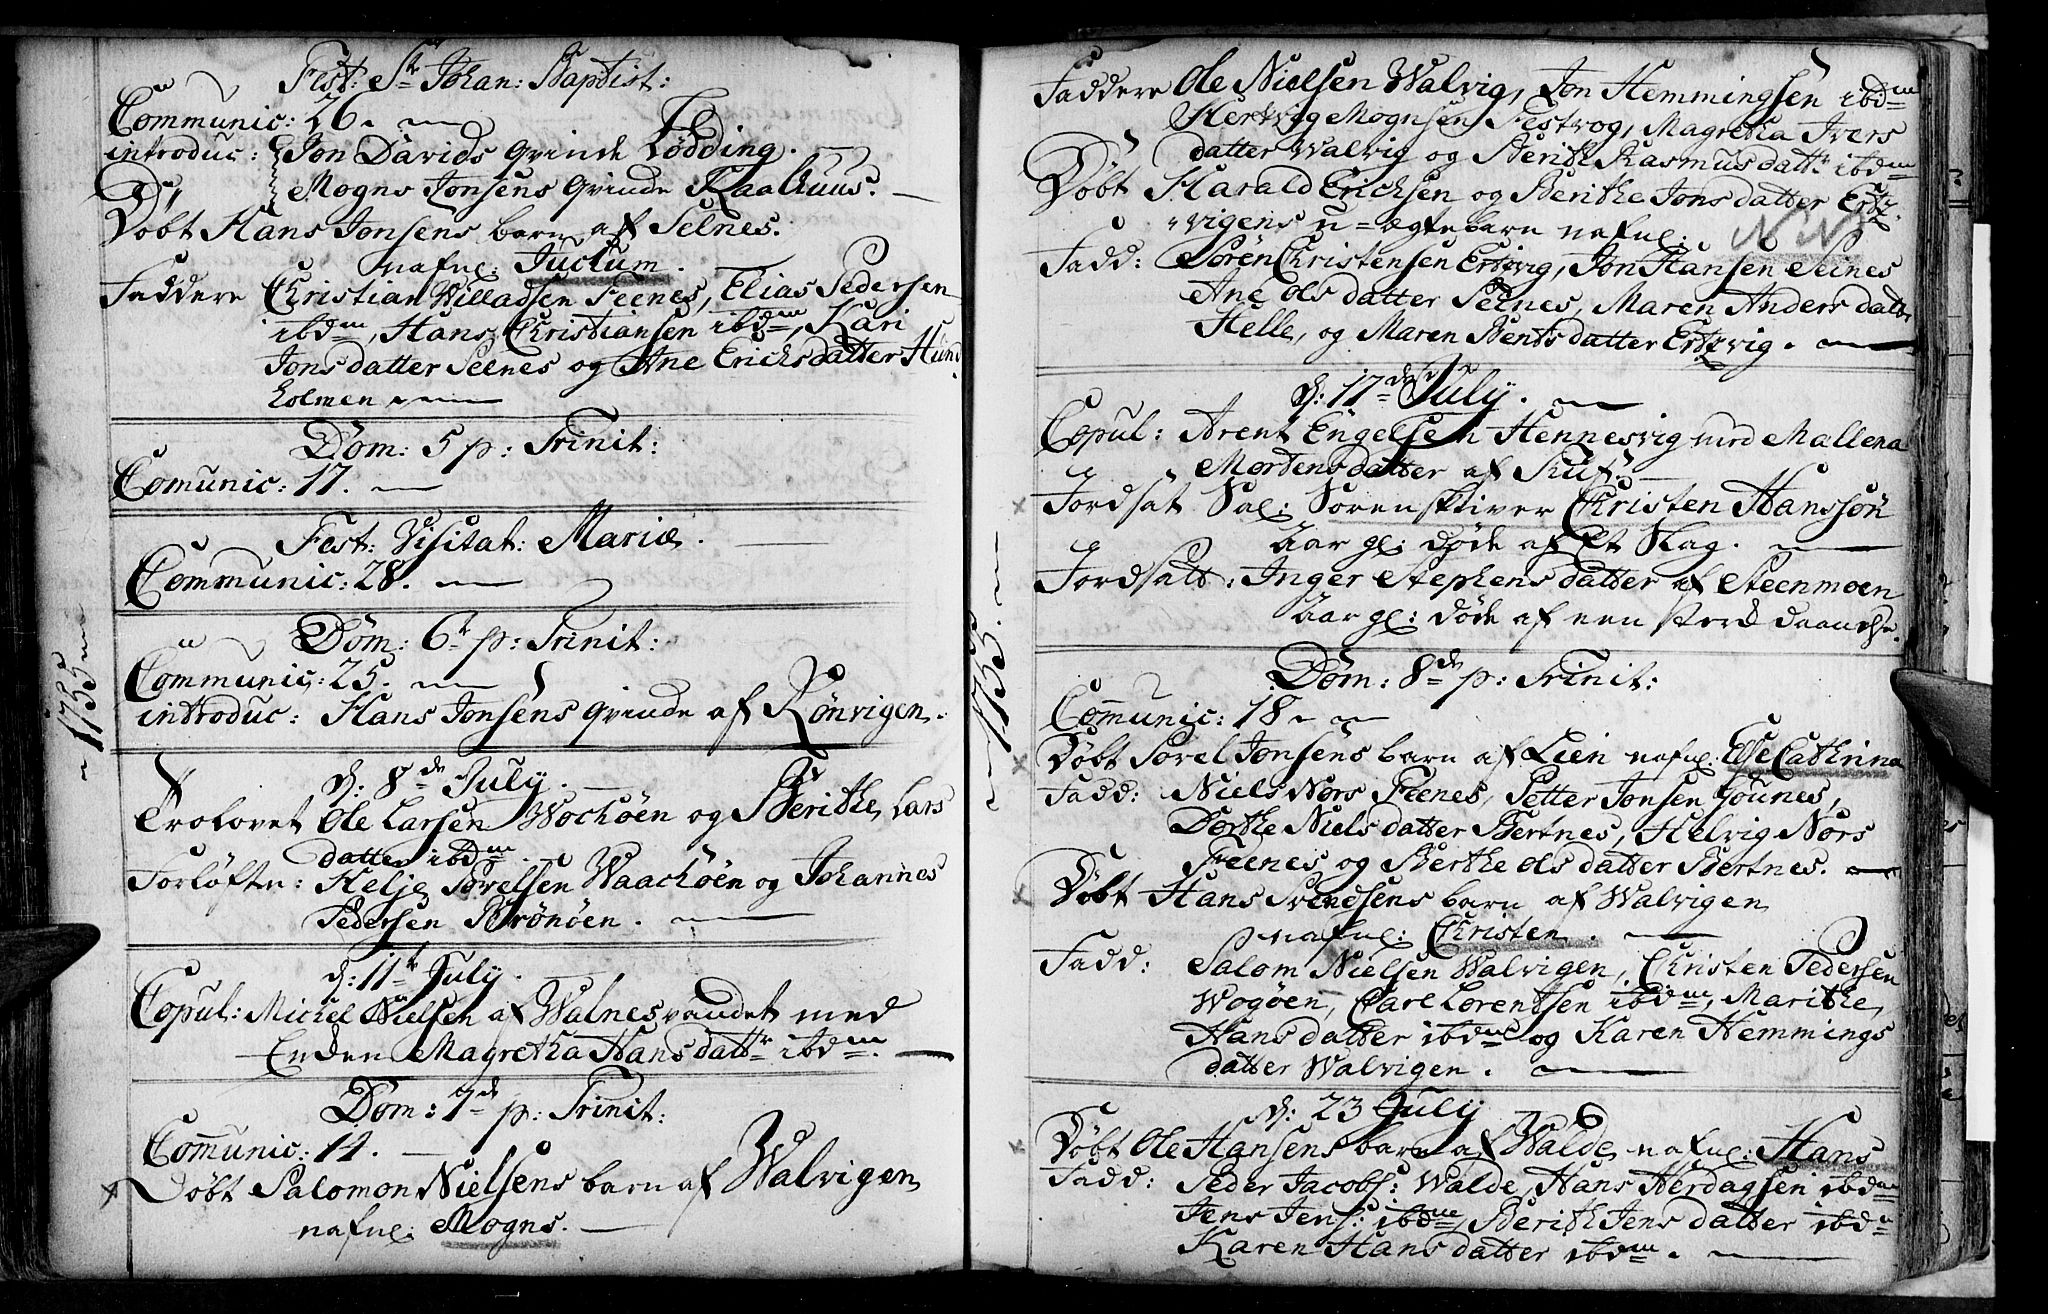 Fest: St Johan: Baptist:
Communic: 26.
introduc: Jon Davids Qvinde Lødding.
Mogns Jonsens Qvinde Kaalhuus.
Døbt Hans Jonsens barn af Selnes.
nafnl: Justum.
Faddere Christian Willadsen Feenes, Elias Pedersen
ibdm, Hans Christiansen ibdm, Kari
Jonsdatter Seenes og Ane Erichsdatter Hund
holmen
Dom: 5 p: Trinit:
Comunic: 17.
Fest: Visitat: Mariæ.
Communic: 28.
Dom: 6t p: Trinit:
Communic: 25.
introduc: Hans Jonsens Qvinde af Rønvigen.
1755
d: 8de July.
Trolovet Ole Larsen Wochøen og Berithe Lars
datter ibdm.
Forløfte: Helje Torelsen Waachøen og Johannes
Pedersen Brønøen.
d: 11te July.
Copul: Michel Nielsen af Walnesvandet med
Enchen Magretha Hansdattr ibdm.
Dom: 7de p: Trinit:
Comunic: 14.
Døbt Salomon Nielsens barn af Walvigen
nafnl: Mogns.
Faddere Ole Nielsen Walvig, Jon Hemmingsen ibdm
Hertvig Mognsen Festvog, Magretha Ivers
datter Walvig og Berithe Rasmusdattr ibdm
Døbt Harald Erichsen og Berithe Jonsdatter Ertz-
vigens u=ægte barn nafnl: NN
Fadd: Søren Christensen Ertzvig, Jon Hansen Seines
Ane Olsdatter Seenes, Maren Anders datter
Helle, og Maren Bentsdatter Ertzvig.
d: 17de July.
Copul: Arent Engelsen Hennesvig med Mallena
Mortensdatter af
Jordsat Sal: Sorenskriver Christen Hanssøn
Aar gl: døde af Et Slag.
Jordsatt: Inger Stephensdatter af Steenmoen
Aar gl: døde af een
1755.
Dom: 8de p: Trinit:
Comunic: 18
Døbt Torel Jonsens barn af Lien nafnl: Else Cathrina
Fadd: Niels Nors Feenes, Petter Jonsen Godnes,
Dorthe Nielsdatter Bertnes, Helvig Nors
Feenes og Berthe Olsdatter Bertnes.
Døbt Hans Svendsens barn af Walvigen
nafnl: Christen.
Fadd: Salom Nielsen Walvigen, Christen Pedersen
Wogøen, Carl Lorentsen ibdm, Marithe
Hansdatter ibdm og Karen Hemmings
datter Walvigen.
d: 23 July
Døbt Ole Hansens barn af Walde nafnl: Hans
Fadd: Peder Jacobs: Walde, Hans Herdagsen ibdm
Jens Jens: ibdm, Berith Jensdatter ibdm
Karen Hansdatter ibdm.